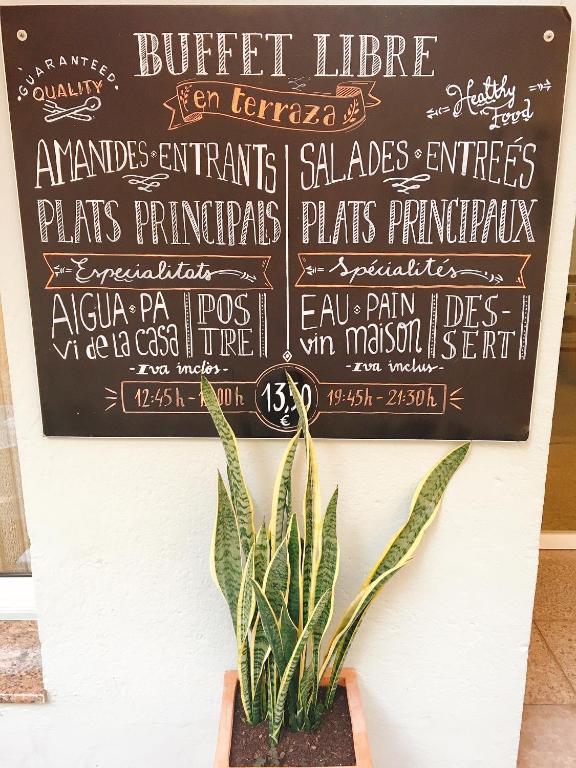 GUARANTEED
QUALITY
BUFFET LIBRE
en terraza
Healthy
Food
AMANIDES · ENTRANTS
PLATS PRINCIPALS
Especialitats
AIGUA · PA
Vi de La Casa
POS
TRE
- Iva inclòs -
SALADES · ENTREÉS
PLATS PRINCIPAUX
Spécialités
EAU · PAIN
vin maison
DES-
SERT
- Iva inclus -
12:45h -
00h
13,50
€
19:45h - 21:30h